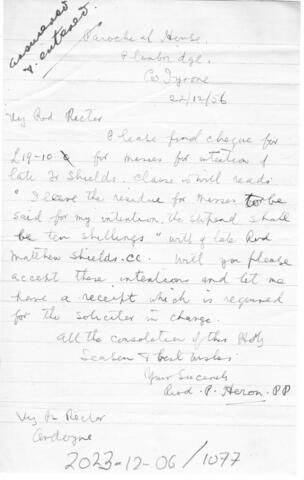 answered
& entered
Parochial House.
Plumbridge.
Co Tyrone
22/12/56
Very Revd Rector
Please find cheque for
£19-10 for masses for intention of
late Fr Shields. Clause in will reads
"I leave the residue for masses to be
said for my intention, the stipend shall
be ten shillings" will of late Revd
Matthew Shields. CC. Will you please
accept these intentions and let me
have a receipt which is required
for the solicitor in charge.
All the consolation of this Holy
Season & best wishes.
Your Sincerely
Revd. P. Heron. PP
Very Rev Rector
Ardoyne
2023-12-06/1077